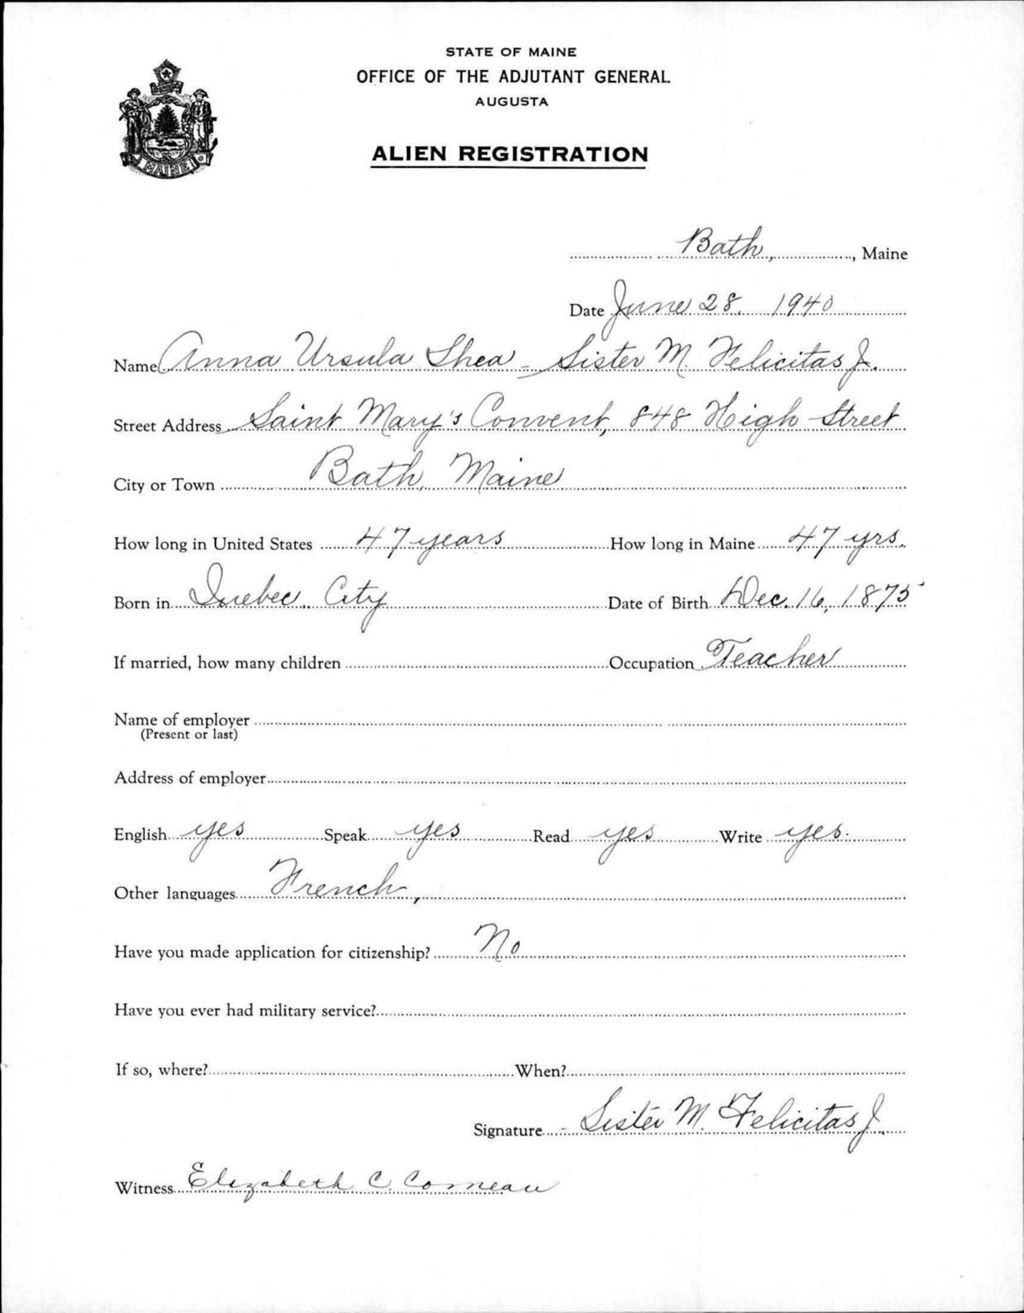 STATE OF MAINE
OFFICE OF THE ADJUTANT GENERAL
AUGUSTA
ALIEN REGISTRATION
MAINE
Bath, , Maine
Date June 28, 1940
Name Anna Ursula Shea - Sister M. Felicitas J.
Street Address Saint Mary's Convent, 848 High Street
City or Town Bath, Maine
How long in United States 47 years How long in Maine 47 yrs.
Born in Quebec City Date of Birth Dec. 16, 1875
If married, how many children Occupation Teacher
Name of employer
(Present or last)
Address of employer
English yes Speak yes Read yes Write yes.
Other languages French,
Have you made application for citizenship? No
Have you ever had military service?
If so, where? When?
Signature - Sister M. Felicitas J.
Witness Elizabeth C. Comeau